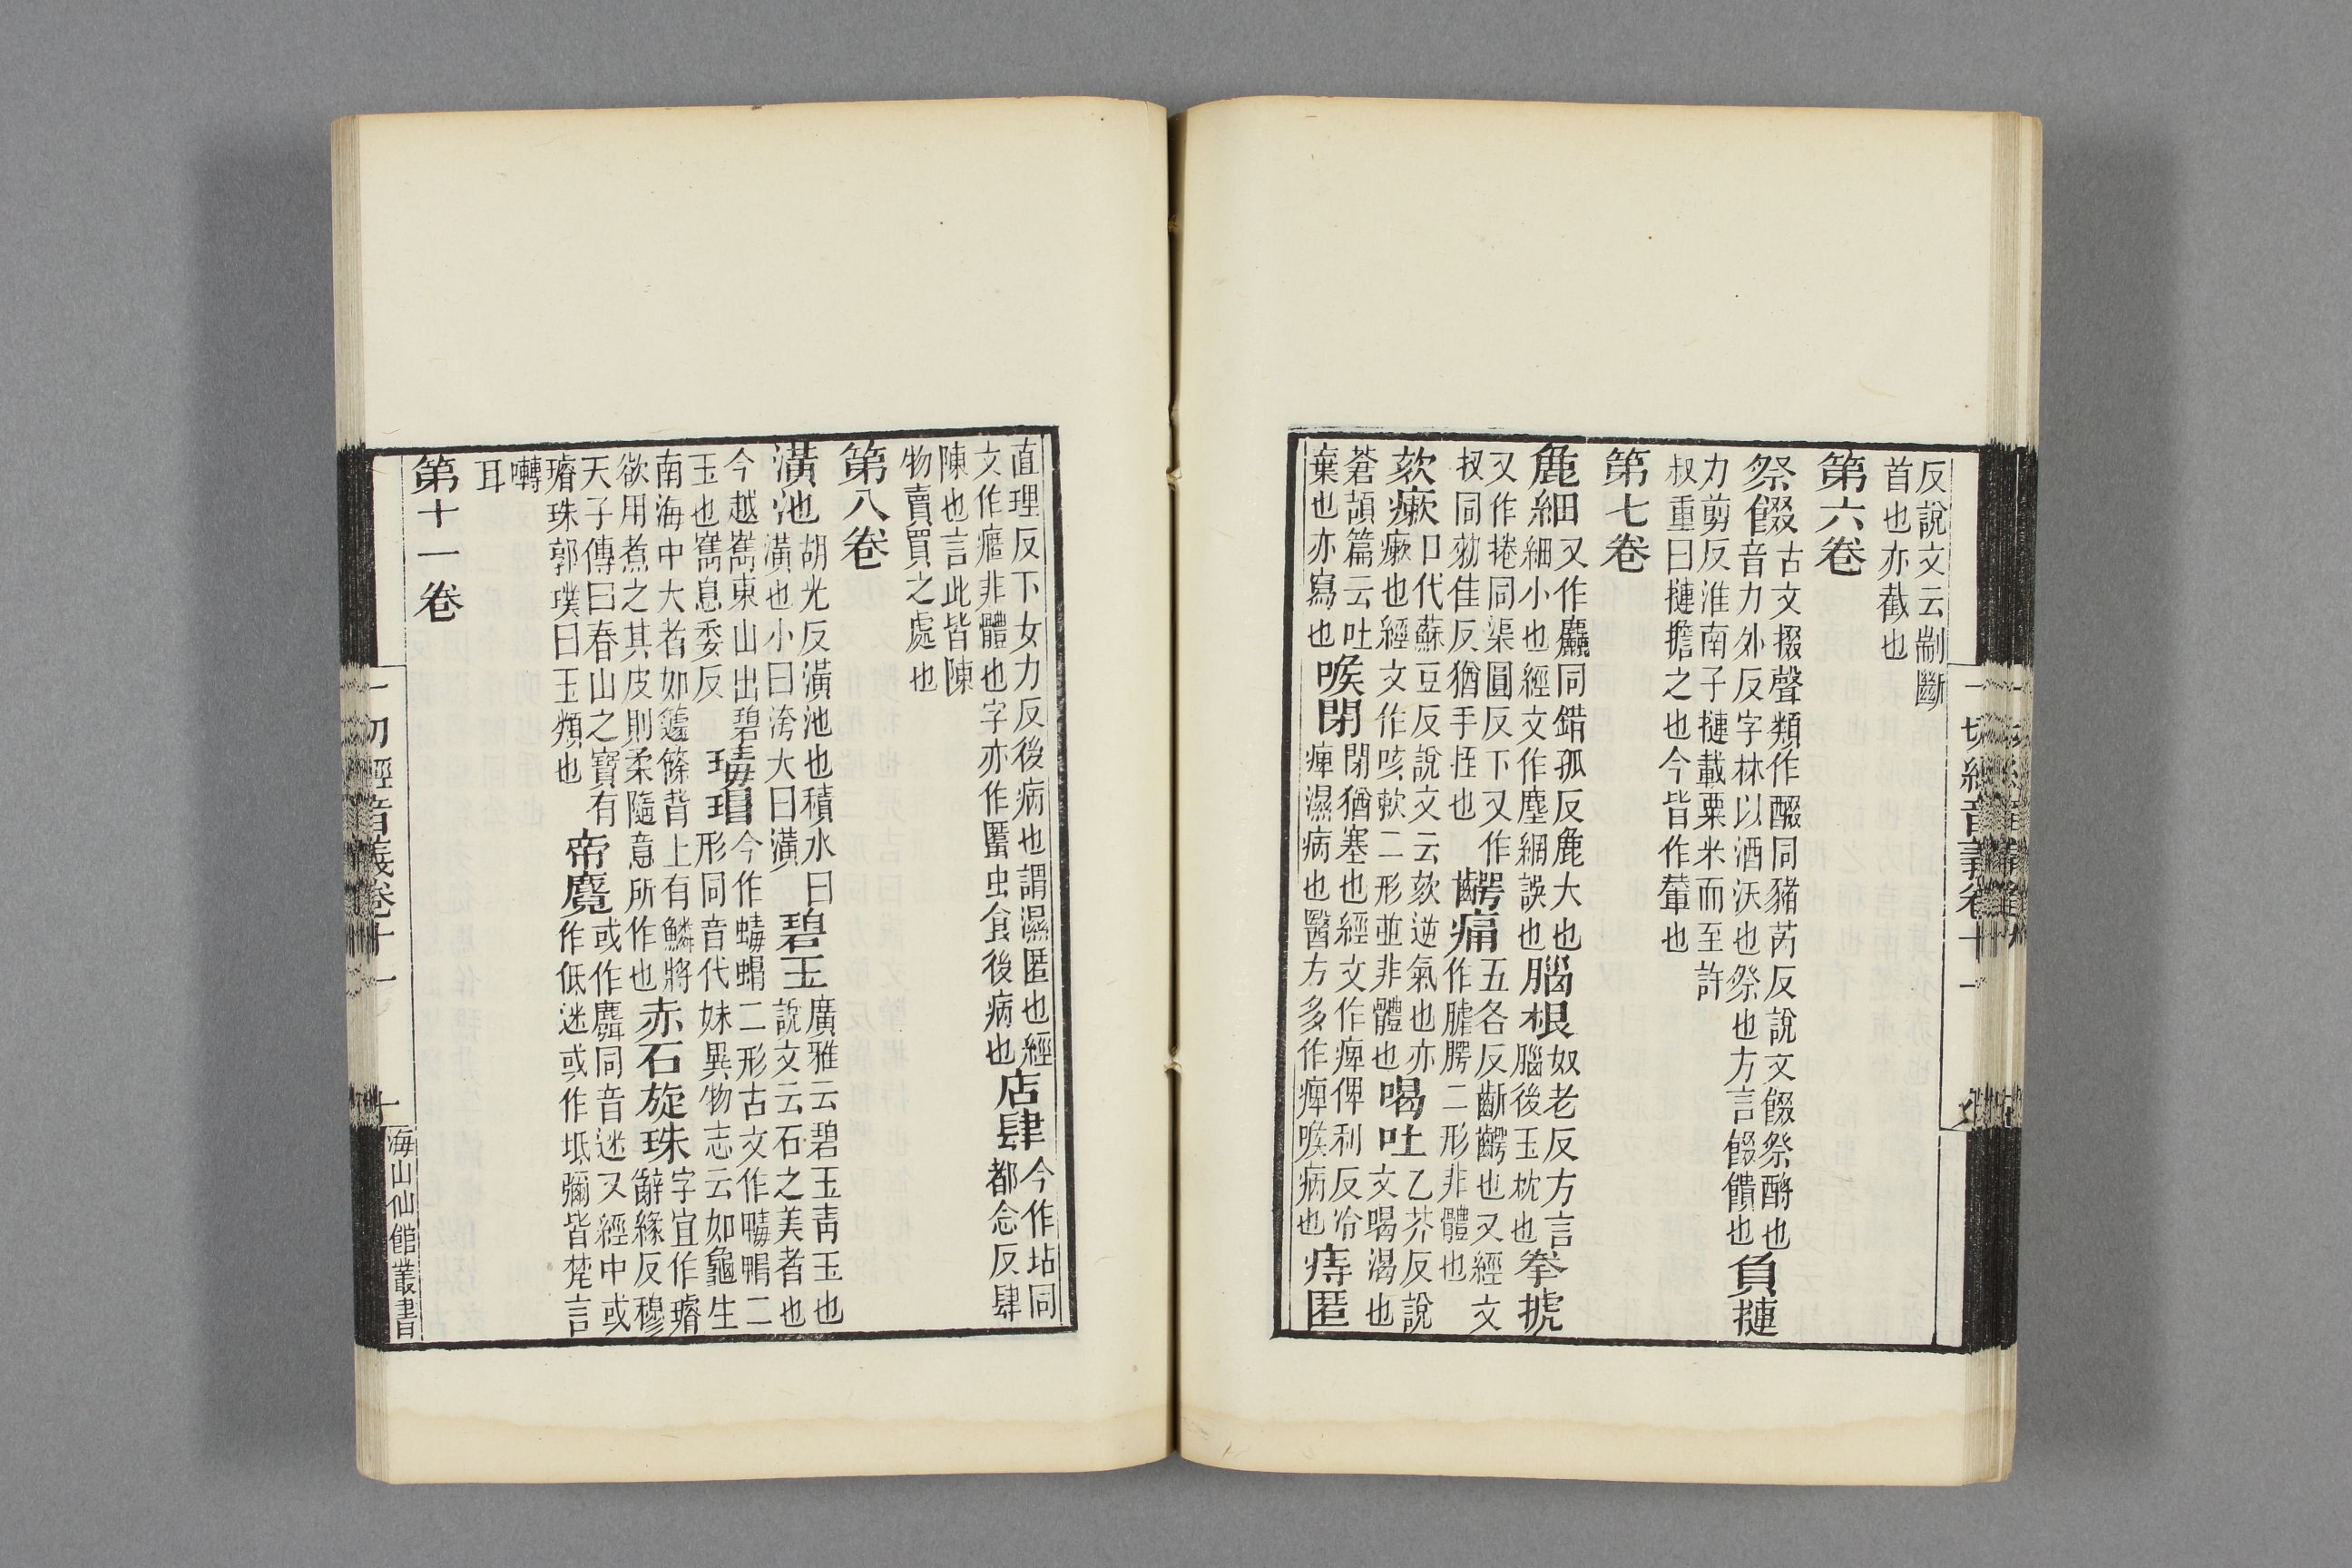 反說文云剬斷
首也亦截也
第六卷
祭餟古文掇聲類作醊同豬芮反說文餟祭酹也
音力外反字林以酒沃也祭也方言餟饋也負摙
力剪反淮南子摙載粟米而至許
叔重曰摙擔之也今皆作輂也
第七卷
麁細又作麤同錯孤反麁大也
細小也經文作塵綱誤也腦根奴老反方言
腦後玉枕也拳搋
又作捲同渠圓反下又作
扠同勑佳反猶手挃也齶痛五各反齗齶也又經文
作臄腭二形非體也
欬瘶口代蘇豆反說文云欬逆氣也亦
瘶也經文作咳欶二形並非體也喝吐乙芥反說
文喝渴也
蒼頡篇云吐
棄也亦寫也喉閉閉猶塞也經文作痺俾利反冷
痺濕病也醫方多作痺喉病也痔匿
直理反下女力反後病也謂濕匿也經
文作𤺺非體也字亦作䘌虫食後病也店肆今作坫同
都念反肆
陳也言此皆陳
物賣買之處也
第八卷
潢池胡光反潢池也積水曰
潢也小曰洿大曰潢碧玉廣雅云碧玉青玉也
說文云石之美者也
今越巂東山出碧
玉也巂息委反瑇瑁今作蝳蝐二形古文作
形同音代妹異物志云如龜生
南海中大者如籧篨背上有鱗將
欲用煮之其皮則柔隨意所作也赤石旋珠字宜作璿
辭緣反穆
天子傳曰春山之寶有
璿珠郭璞曰玉類也帝魔或作麛同音迷又經中或
作低迷或作坻彌皆梵言
囀
耳
第十一卷
一切經音義卷十一
海山仙館叢書